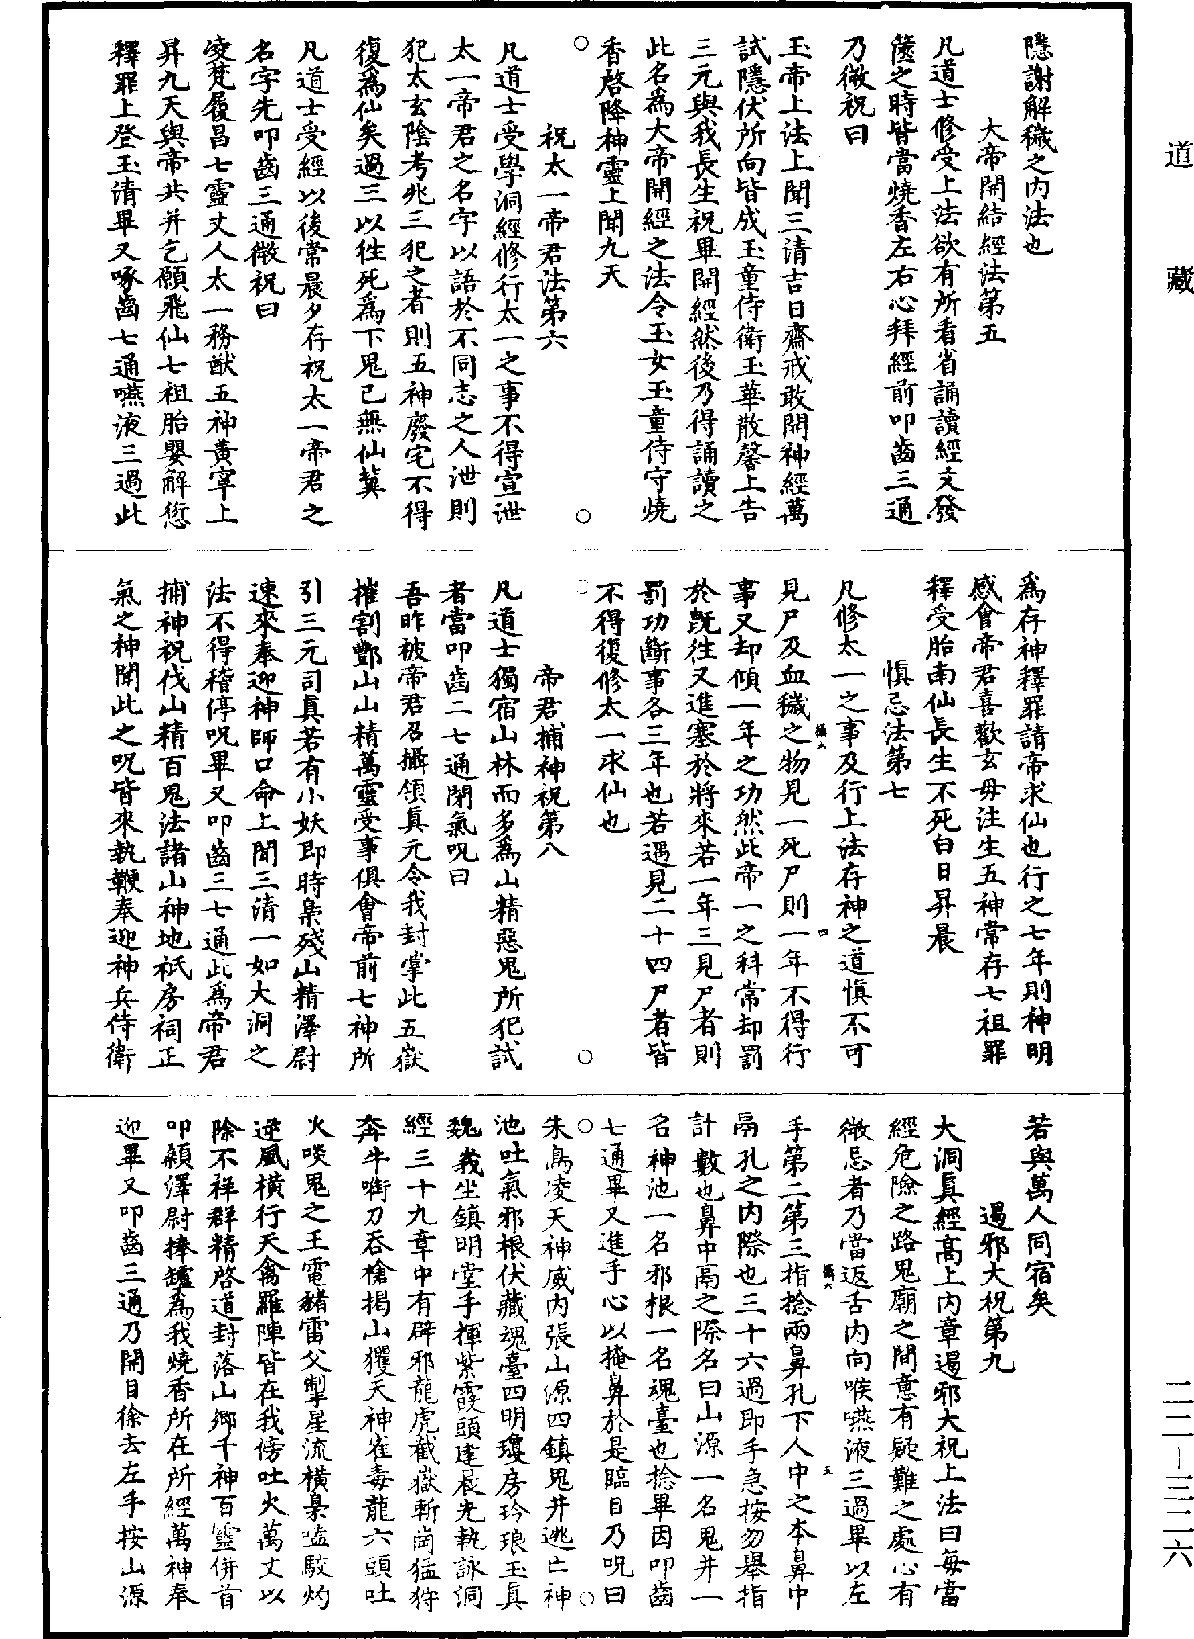 道藏
二二－三二六
隱謝解穢之內法也
大帝開結經法第五
凡道士修受上法欲有所看省誦讀經文發
篋之時皆當燒香左右心拜經前叩齒三通
乃微祝曰
玉帝上法上聞三清吉日齋戒敢開神經萬
試隱伏所向皆成玉童侍衛玉華散馨上告
三元與我長生祝畢開經然後乃得誦讀之
此名為大帝開經之法令玉女玉童侍守燒
香啓降神靈上聞九天
祝太一帝君法第六
凡道士受學洞經修行太一之事不得宣泄
太一帝君之名字以語於不同志之人泄則
犯太玄陰考兆三犯之者則五神廢宅不得
復為仙矣過三以往死為下鬼已無仙冀
凡道士受經以後常晨夕存祝太一帝君之
名字先叩齒三通微祝曰
凌梵履昌七靈丈人太一務猷五神黃寧上
昇九天與帝共并乞願飛仙七祖胎嬰解愆
釋罪上登玉清畢又啄齒七通嚥液三過此
為存神釋罪請帝求仙也行之七年則神明
感會帝君喜歡玄母注生五神常存七祖罪
釋受胎南仙長生不死白日昇晨
慎忌法第七
凡修太一之事及行上法存神之道慎不可
見尸及血穢之物見一死尸則一年不得行
事又却傾一年之功然此帝一之科常却罰
於既往又進塞於將來若一年三見尸者則
罰功斷事各三年也若遇見二十四尸者皆
不得復修太一求仙也
帝君捕神祝第八
凡道士獨宿山林而多為山精惡鬼所犯試
者當叩齒二七通閉氣呪曰
吾昨被帝君召攝領真元令我封掌此五嶽
摧割酆山山精萬靈受事俱會帝前七神所
引三元司真若有小妖即時梟殘山精澤尉
速來奉迎神師口命上聞三清一如大洞之
法不得稽停呪畢又叩齒三七通此為帝君
捕神祝伐山精百鬼法諸山神地祇房祠正
氣之神聞此之呪皆來執鞭奉迎神兵侍衛
若與萬人同宿矣
遏邪大祝第九
大洞真經高上內章遏邪大祝上法曰每當
經危險之路鬼廟之間意有疑難之處心有
微忌者乃當返舌內向喉嚥液三過畢以左
手第二第三指捻兩鼻孔下人中之本鼻中
鬲孔之內際也三十六過即手急按勿舉指
計數也鼻中鬲之際名曰山源一名鬼井一
名神池一名邪根一名魂臺也捻畢因叩齒
七通畢又進手心以掩鼻於是臨目乃呪曰
朱鳥凌天神威內張山源四鎮鬼井逃亡神
池吐氣邪根伏藏魂臺四明瓊房玲琅玉真
巍峩坐鎮明堂手揮紫霞頭建晨光執詠洞
經三十九章中有辟邪龍虎截嶽斬崗猛狩
奔牛嘶刀吞槍揭山玃天神雀毒龍六頭吐
火啖鬼之王電豬雷父掣星流橫梟嗑駮灼
逆風橫行天禽羅陣皆在我傍吐火萬丈以
除不祥群精啓道封落山鄉千神百靈併首
叩顙澤尉捧鑪為我燒香所在所經萬神奉
迎畢又叩齒三通乃開目徐去左手按山源